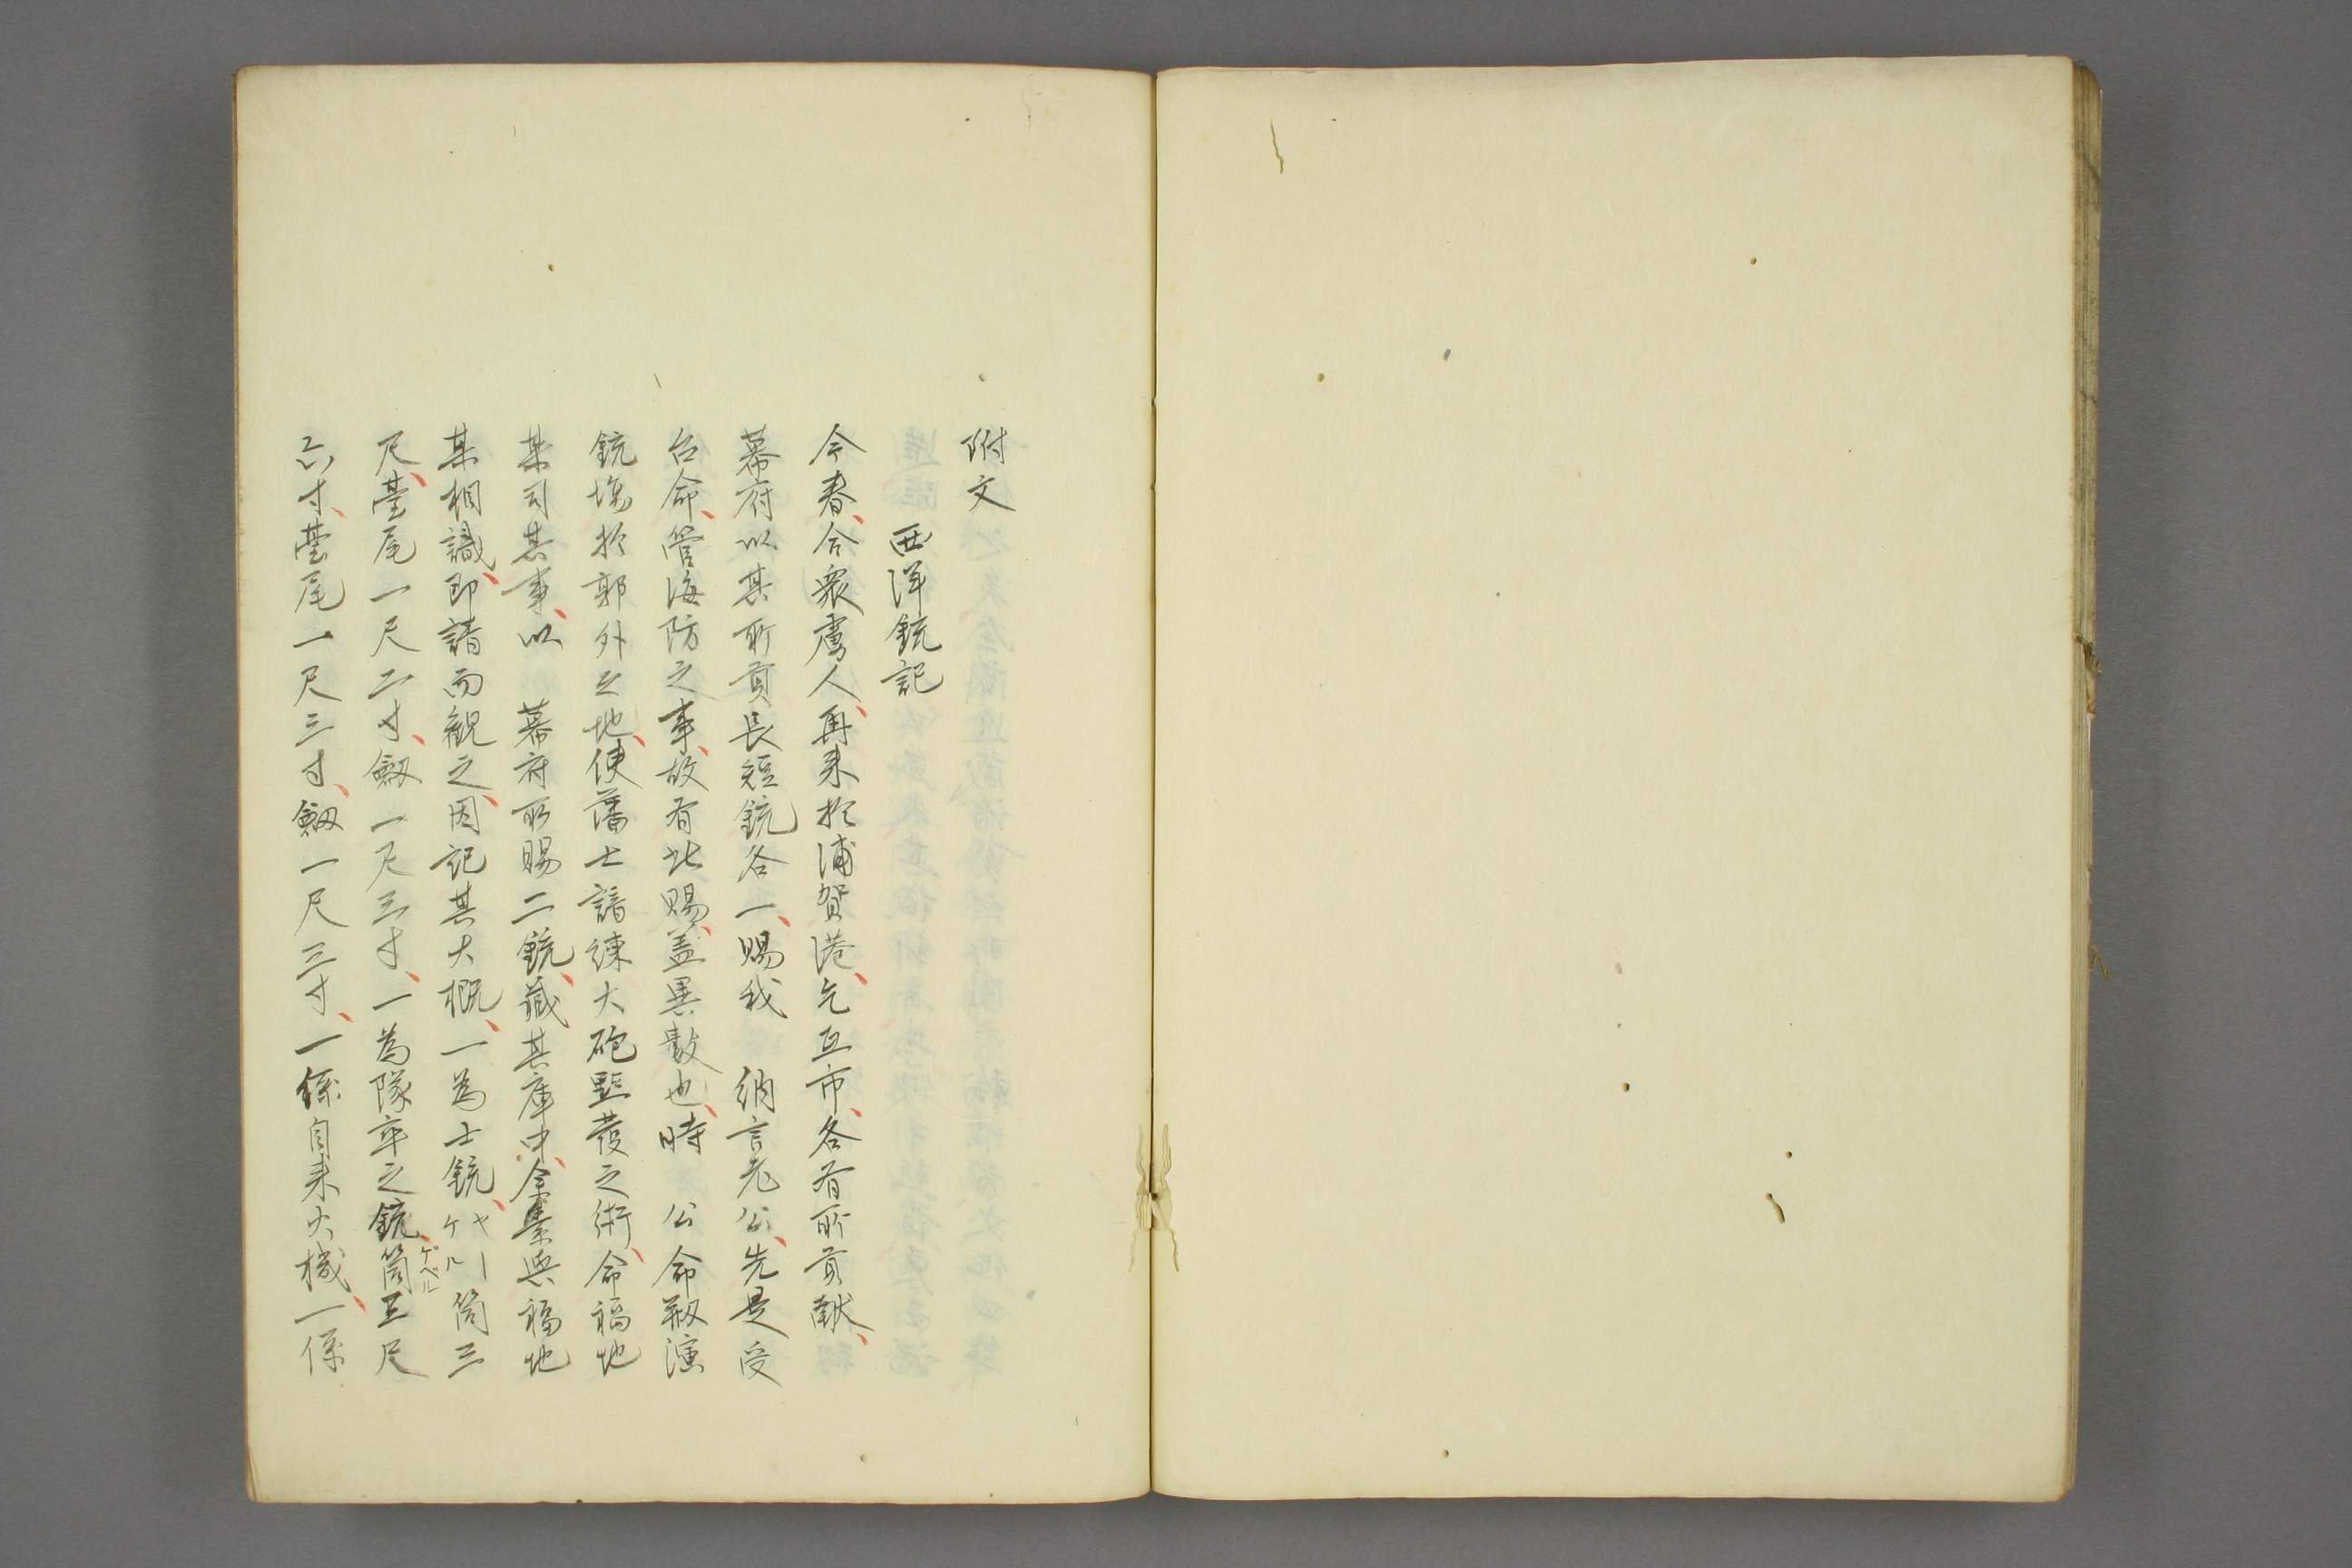 附文
西洋銃記
今春、合衆虜人、再来於浦賀港、乞互市、各有所貢献、
幕府以其所貢長短銃各一、賜我　納言老公、先是受
台命、管海防之事、故有此賜、盖異数也、時　公命剏演
銃場於郭外之地、使藩士諳練大砲䀋發之術、命福地
某司其事、以　幕府所賜二銃、藏其庫中、余素與福地
某相識、即請而観之、因記其大概、一為士銃、ヤーケル筒三
尺、臺尾一尺二寸、劔一尺三寸、一為隊卒之銃、ゲベル筒五尺
六寸、臺尾一尺三寸、劔一尺三寸、一係自来火機、一係